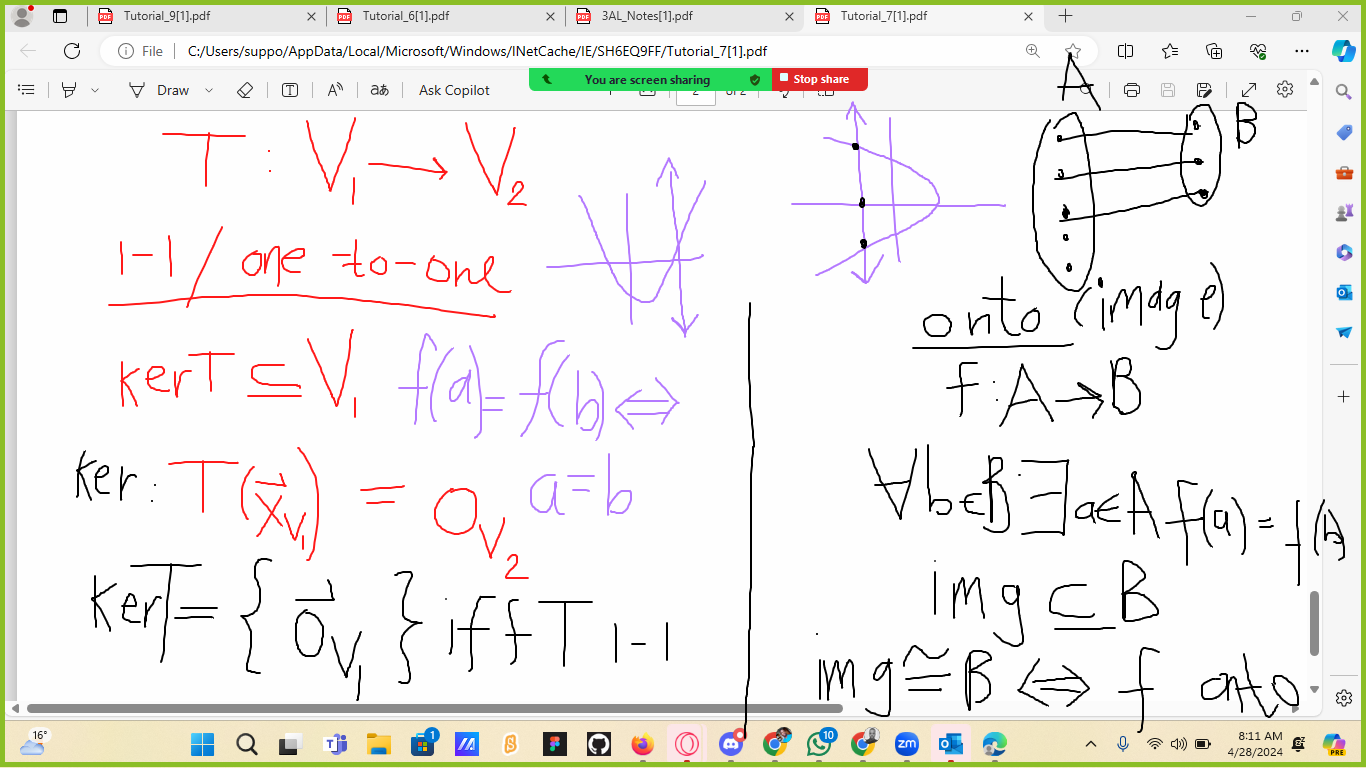 Tutorial_9[1].pdf
Tutorial_6[1].pdf
3AL_Notes[1].pdf
Tutorial_7[1].pdf
File
C:/Users/suppo/AppData/Local/Microsoft/Windows/INetCache/IE/SH6EQ9FF/Tutorial_7[1].pdf
You are screen sharing
Stop share
Draw
Ask Copilot
T : V₁ → V₂
1-1 / one-to-one
ker T ⊆ V₁
f(a) = f(b) ⇔
a = b
ker : T(x⃗_V₁) = 0_V₂
ker T = { 0⃗_V₁ } iff T 1-1
A
B
onto (image)
f : A → B
∀b∈B ∃a∈A f(a) = f(b)
img ⊆ B
img ≅ B ⇔ f onto
16°
1
10
zm
PRE
8:11 AM
4/28/2024